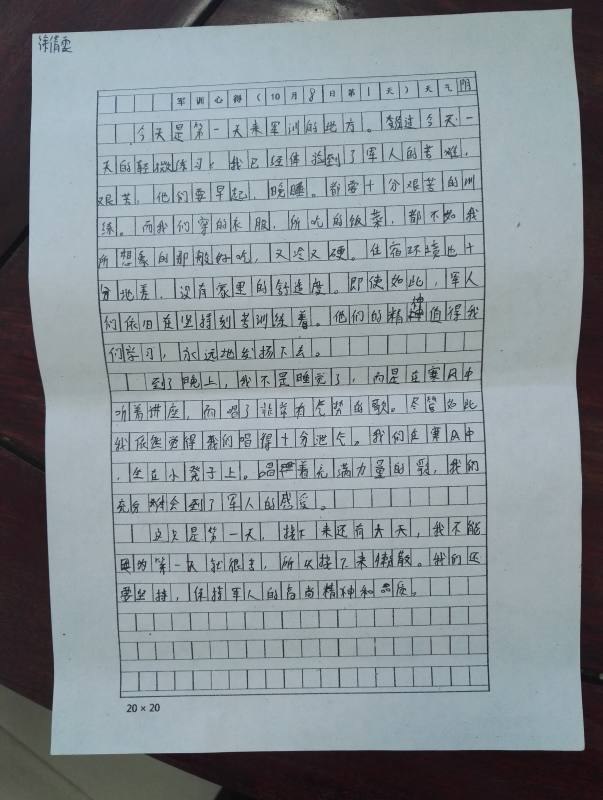 徐倩
军训心得（10月8日第1天）天气阴
今天是第一天来军训的地方。经过今天一
天的轻微练习，我已经体验到了军人的苦难，
艰苦，他们要早起，晚睡。都要十分艰苦的训
练。而我们穿的衣服，所吃的饭菜，都不如我
所想象的那般好吃，又冷又硬。住宿环境也十
分地差，没有家里的舒适度。即使如此，军人
们依旧在坚持刻苦训练着。他们的精神值得我
们学习，永远地发扬下去。
到了晚上，我不是睡觉了，而是在寒风中
听着讲座，而唱了非常有气势的歌。尽管如此
我依然觉得我们唱得十分泄气。我们在寒风中
，坐在小凳子上。唱着充满力量的歌，我们
充分体会到了军人的感受。
这只是第一天，接下来还有六天，我不能
因为第一天就很苦，所以接下来懒散。我们还
要坚持，保持军人的高尚精神和品质。
20×20